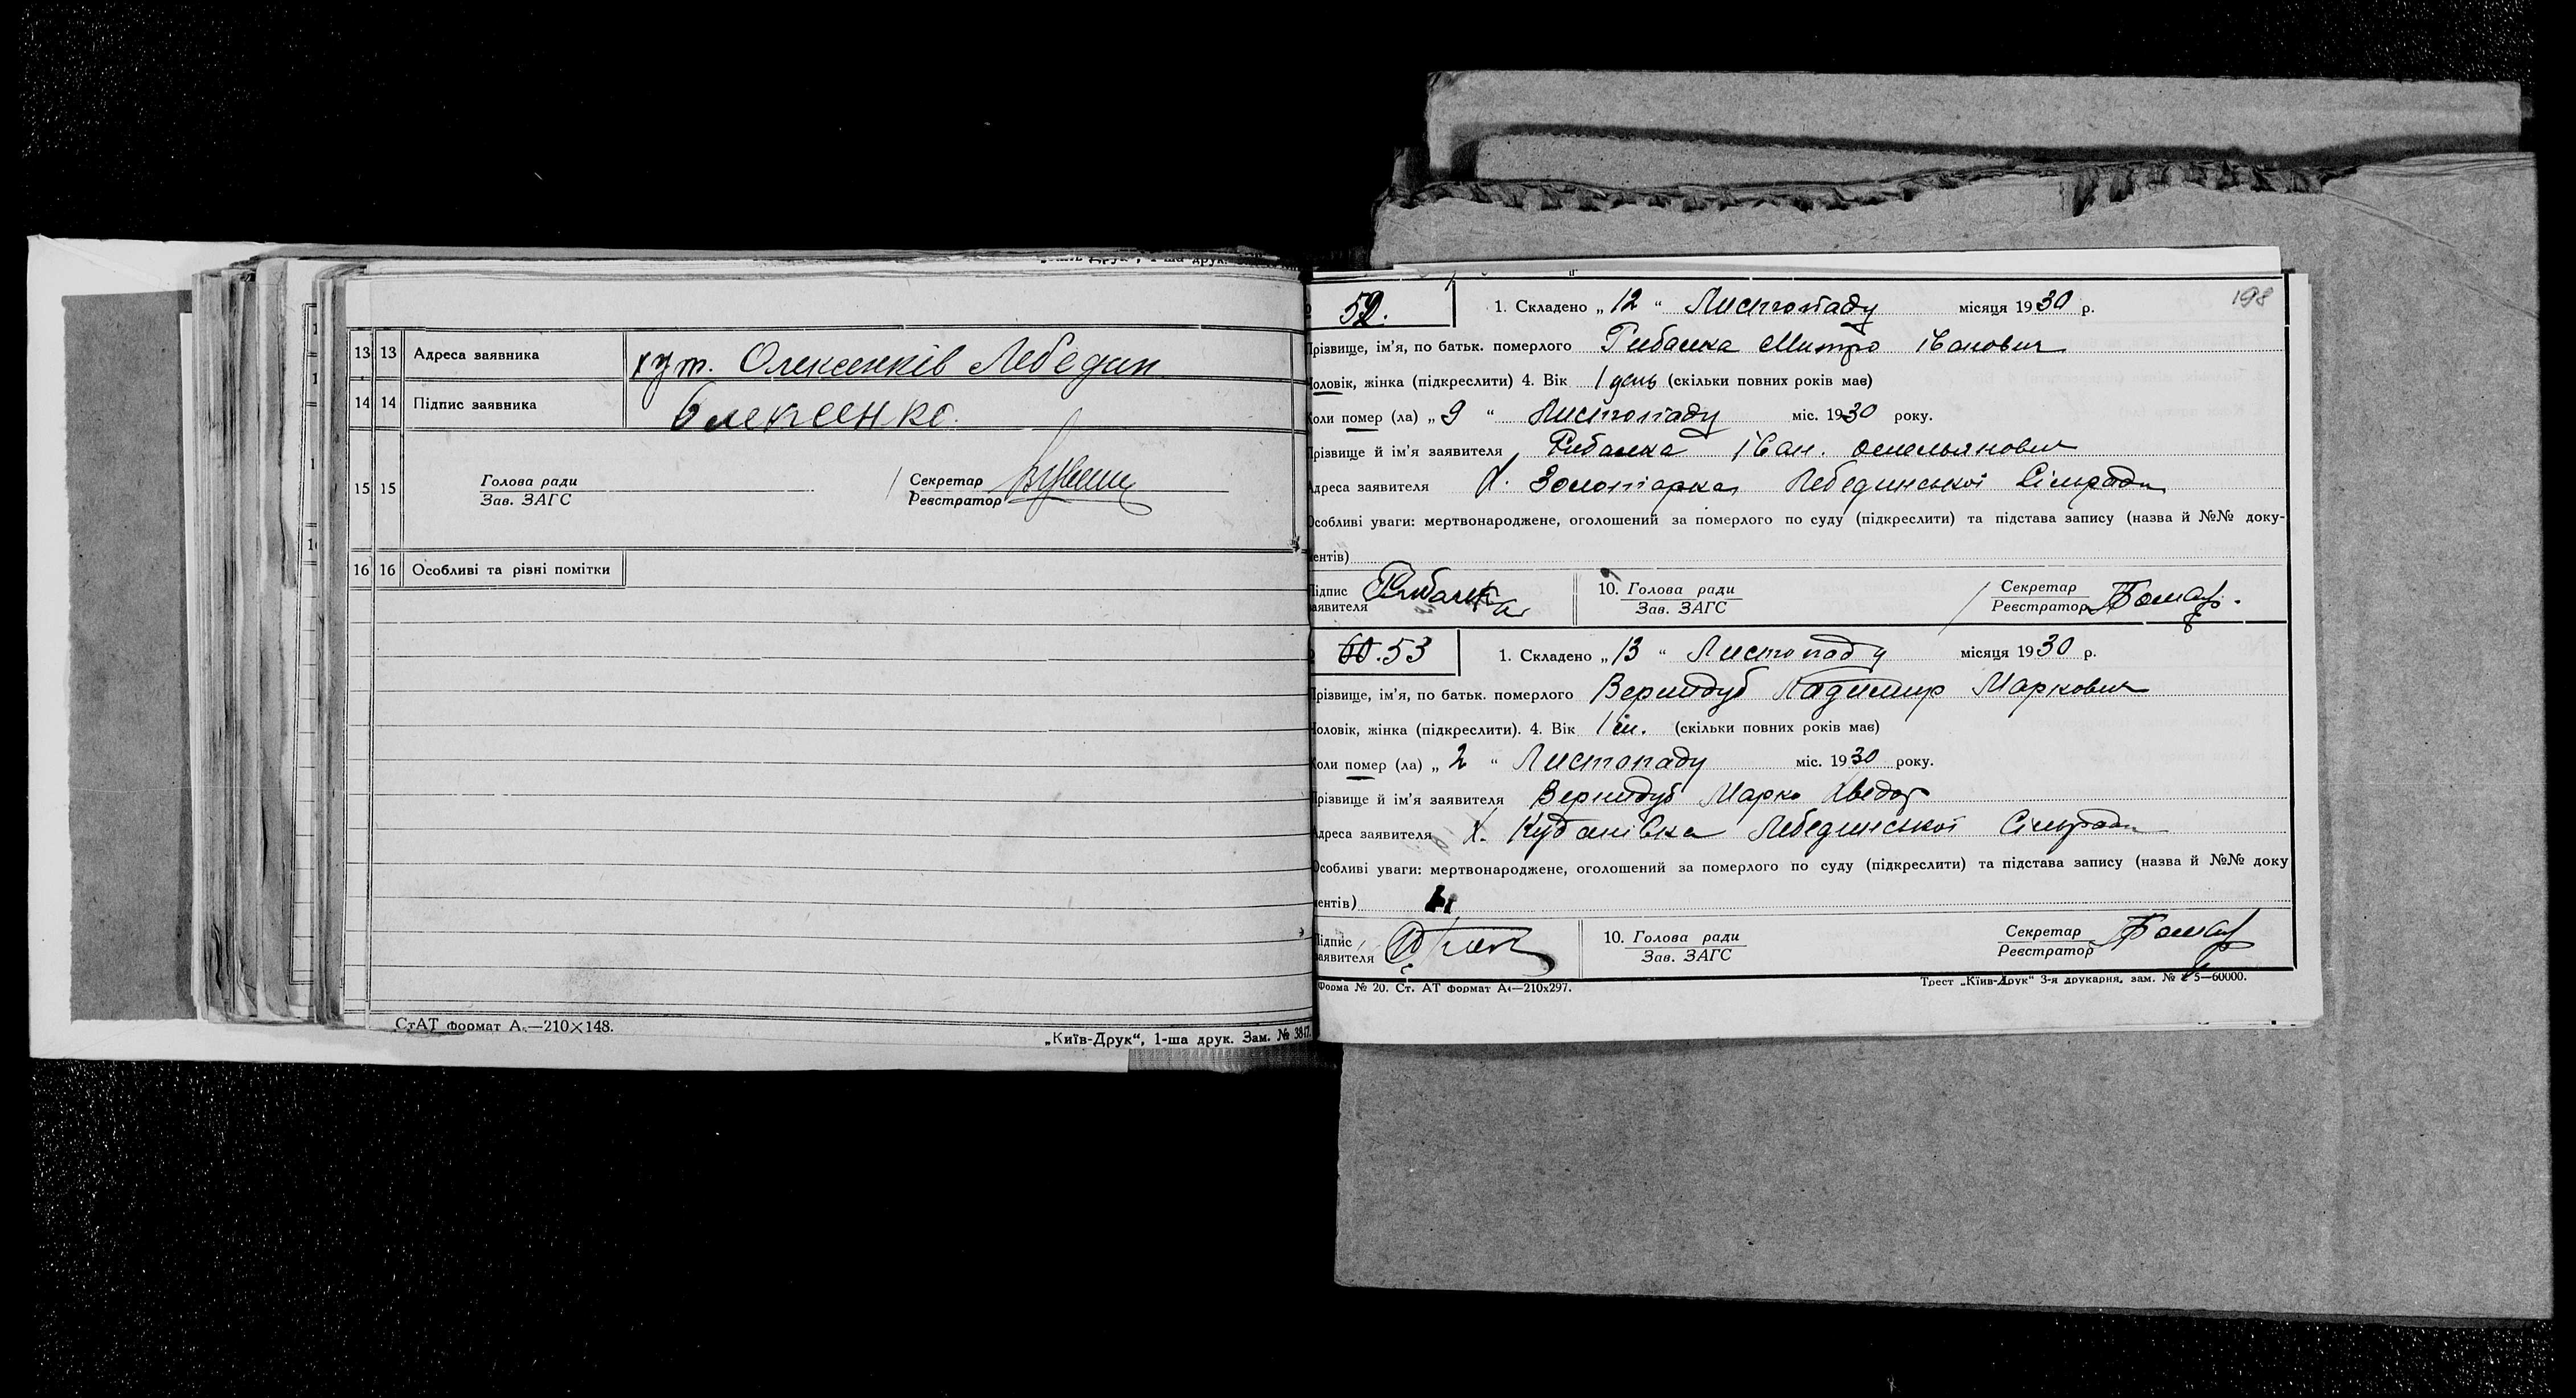 13 13 Адреса заявника хут. Олексенків Лебедин
14 14 Підпис заявника Олексенко.
15 15 Голова ради
Зав. ЗАГС
Секретар
Реєстратор
16 16 Особливі та різні помітки
СтАТ формат А.—210×148.
„Київ-Друк“, 1-ша друк. Зам. № 3847.
198
52. 1. Складено „12“ Листопаду місяця 1930 р.
Прізвище, ім’я, по батьк. померлого Рибалка Митро Іванович
Чоловік, жінка (підкреслити) 4. Вік 1 день (скільки повних років має)
Коли помер (ла) „9“ Листопаду міс. 1930 року.
Прізвище й ім’я заявителя Рибалка Іван. Омельянович
Адреса заявителя Х. Золотарка Лебединської Сільради
Особливі уваги: мертвонароджене, оголошений за померлого по суду (підкреслити) та підстава запису (назва й №№ доку-
ментів)
Підпис заявителя Рибалка
10. Голова ради
Зав. ЗАГС
Секретар
Реєстратор
60. 53 1. Складено „13“ Листопаду місяця 1930 р.
Прізвище, ім’я, по батьк. померлого Вернидуб Маркович
Чоловік, жінка (підкреслити). 4. Вік 1 (скільки повних років має)
Коли помер (ла) „2“ Листопаду міс. 1930 року.
Прізвище й ім’я заявителя Вернидуб Марко Хведор
Адреса заявителя Х. Лебединської Сільради
Особливі уваги: мертвонароджене, оголошений за померлого по суду (підкреслити) та підстава запису (назва й №№ доку
ментів)
Підпис заявителя
10. Голова ради
Зав. ЗАГС
Секретар
Реєстратор
Форма № 20. Ст. АТ формат А4—210х297.
Трест „Київ-Друк“ 3-я друкарня, зам. №